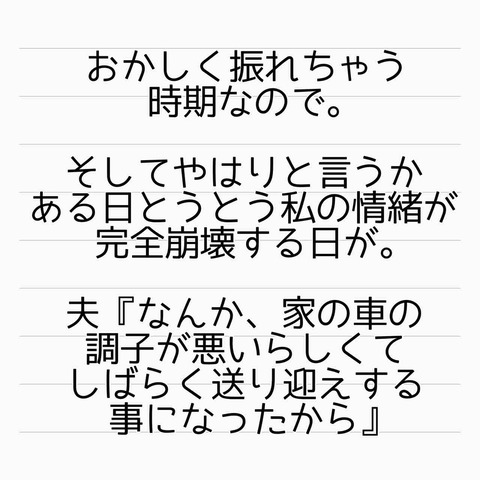 おかしく振れちゃう
時期なので。
そしてやはりと言うか
ある日とうとう私の情緒が
完全崩壊する日が。
夫『なんか、家の車の
調子が悪いらしくて
しばらく送り迎えする
事になったから』